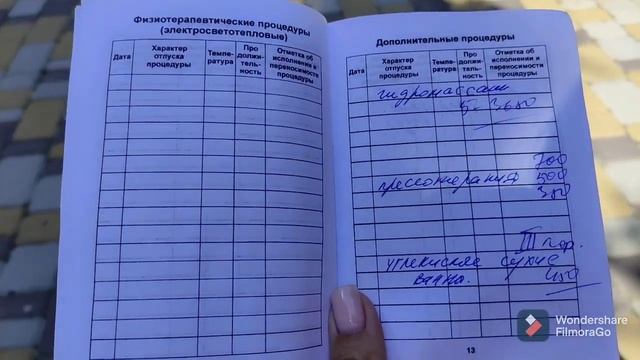 Физиотерапевтические процедуры
(электросветотепловые)
Дата
Характер отпуска процедуры
Темпе-ратура
Про должи-тель-ность
Отметка об исполнении и переносимости процедуры
Дополнительные процедуры
Дата
Характер отпуска процедуры
Темпе-ратура
Про должи-тель-ность
Отметка об исполнении и переносимости процедуры
гидромассаж
700
прессотерапия 500
III пор.
углекислые сухие
ванна. 450
13
Wondershare
FilmoraGo